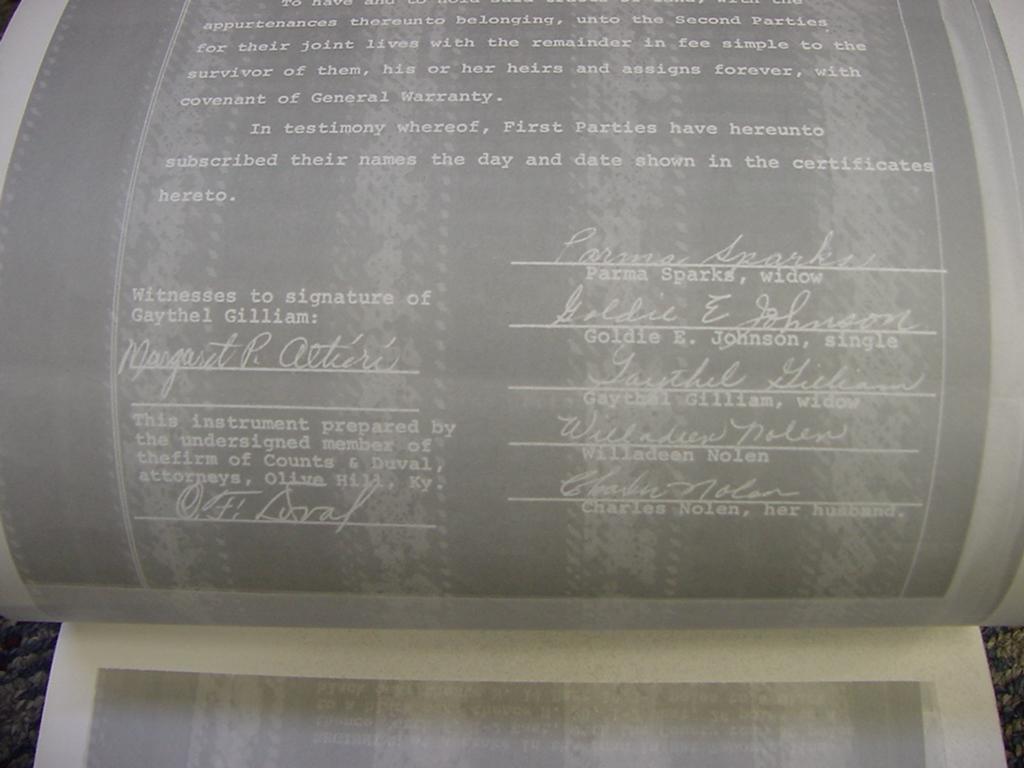 To have and to hold said tracts of land, with the
appurtenances thereunto belonging, unto the Second Parties
for their joint lives with the remainder in fee simple to the
survivor of them, his or her heirs and assigns forever, with
covenant of General Warranty.
In testimony whereof, First Parties have hereunto
subscribed their names the day and date shown in the certificates
hereto.
Parma Sparks
Parma Sparks, widow
Goldie E Johnson
Goldie E. Johnson, single
Gaythel Gilliam
Gaythel Gilliam, widow
Willadeen Nolen
Willadeen Nolen
Charles Nolen
Charles Nolen, her husband.
Witnesses to signature of
Gaythel Gilliam:
Margaret P. Altieri
This instrument prepared by
the undersigned member of
thefirm of Counts & Duval,
attorneys, Olive Hill, Ky.
O.F. Duval